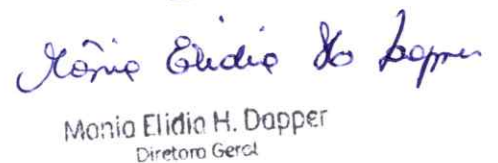 Mônia Elidia H. Dapper
Monia Elidia H. Dapper
Diretora Geral